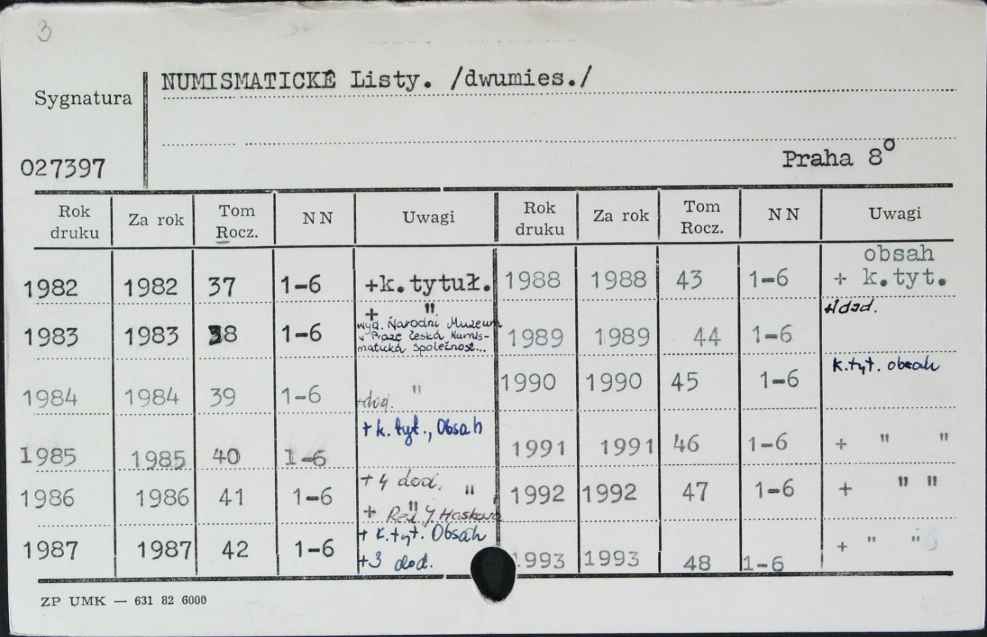 3
NUMISMATICKÉ Listy. /dwumies./
Sygnatura
027397
Praha 8⁰
Rok druku Za rok Tom Rocz. NN Uwagi Rok druku Za rok Tom Rocz. NN Uwagi
1982 1982 37 1-6 +k.tytuł. 1988 1988 43 1-6 obsah + k.tyt.
+ ".
1983 1983 38 1-6 wyd. Národní Muzeum v Praze Česká Numismatická společnost... 1989 1989 44 1-6 +1dod.
1984 1984 39 1-6 " 1990 1990 45 1-6 k.tyt. obsah
1985 1985 40 1-6 + k.tyt., Obsah 1991 1991 46 1-6 + " "
1986 1986 41 1-6 + 4 dod. " 1992 1992 47 1-6 + " "
+ Red. J. "
1987 1987 42 1-6 + k.tyt. Obsah +3 dod. 1993 1993 48 1-6 + " "
ZP UMK — 631 82 6000